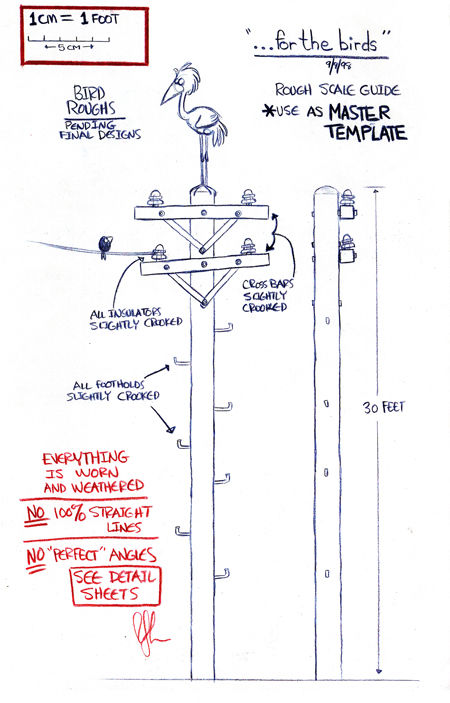 1CM = 1 FOOT
5CM
"...for the birds"
9/9/98
ROUGH SCALE GUIDE
*USE AS MASTER
TEMPLATE
BIRD
ROUGHS
PENDING
FINAL DESIGNS
ALL INSULATORS
SLIGHTLY CROOKED
CROSS BARS
SLIGHTLY
CROOKED
ALL FOOTHOLDS
SLIGHTLY CROOKED
30 FEET
EVERYTHING
IS WORN
AND WEATHERED
NO 100% STRAIGHT
LINES
NO "PERFECT" ANGLES
SEE DETAIL
SHEETS